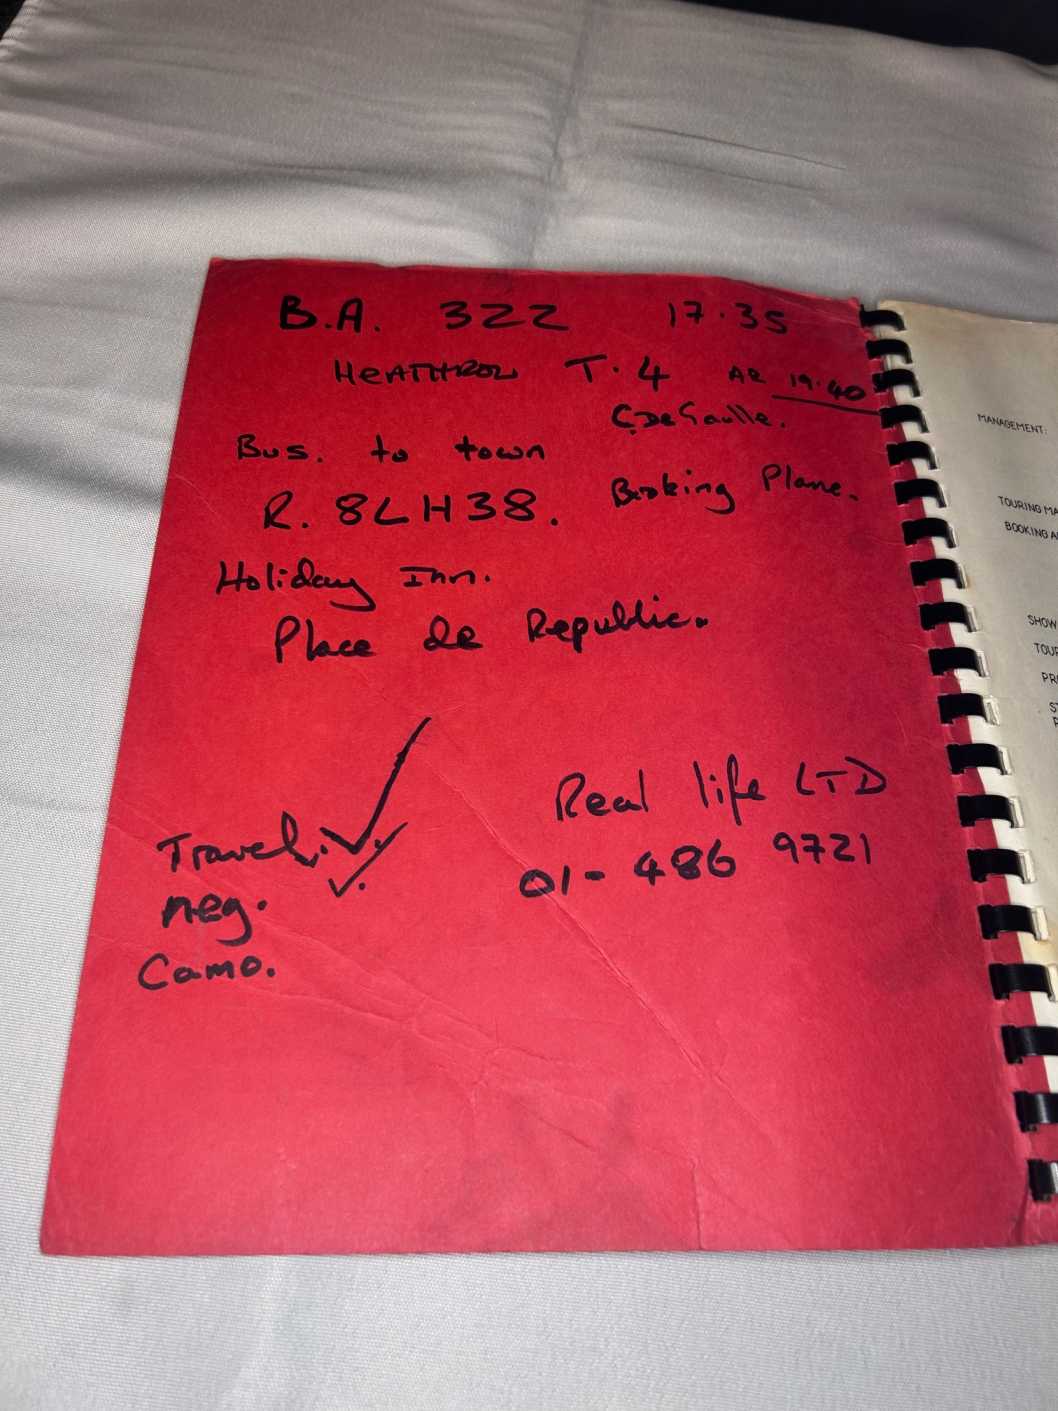 B.A. 322 17.35
HEATHROW T.4 AR 19.40
C.DeGaulle.
Bus. to town
R. 8LH38. Booking Plane.
Holiday Inn.
Place de Republic.
Real life LTD
Travel.
01-486 9721
neg.
Camo.
MANAGEMENT:
TOURING MA
BOOKING A
SHOW
TOUR
PRO